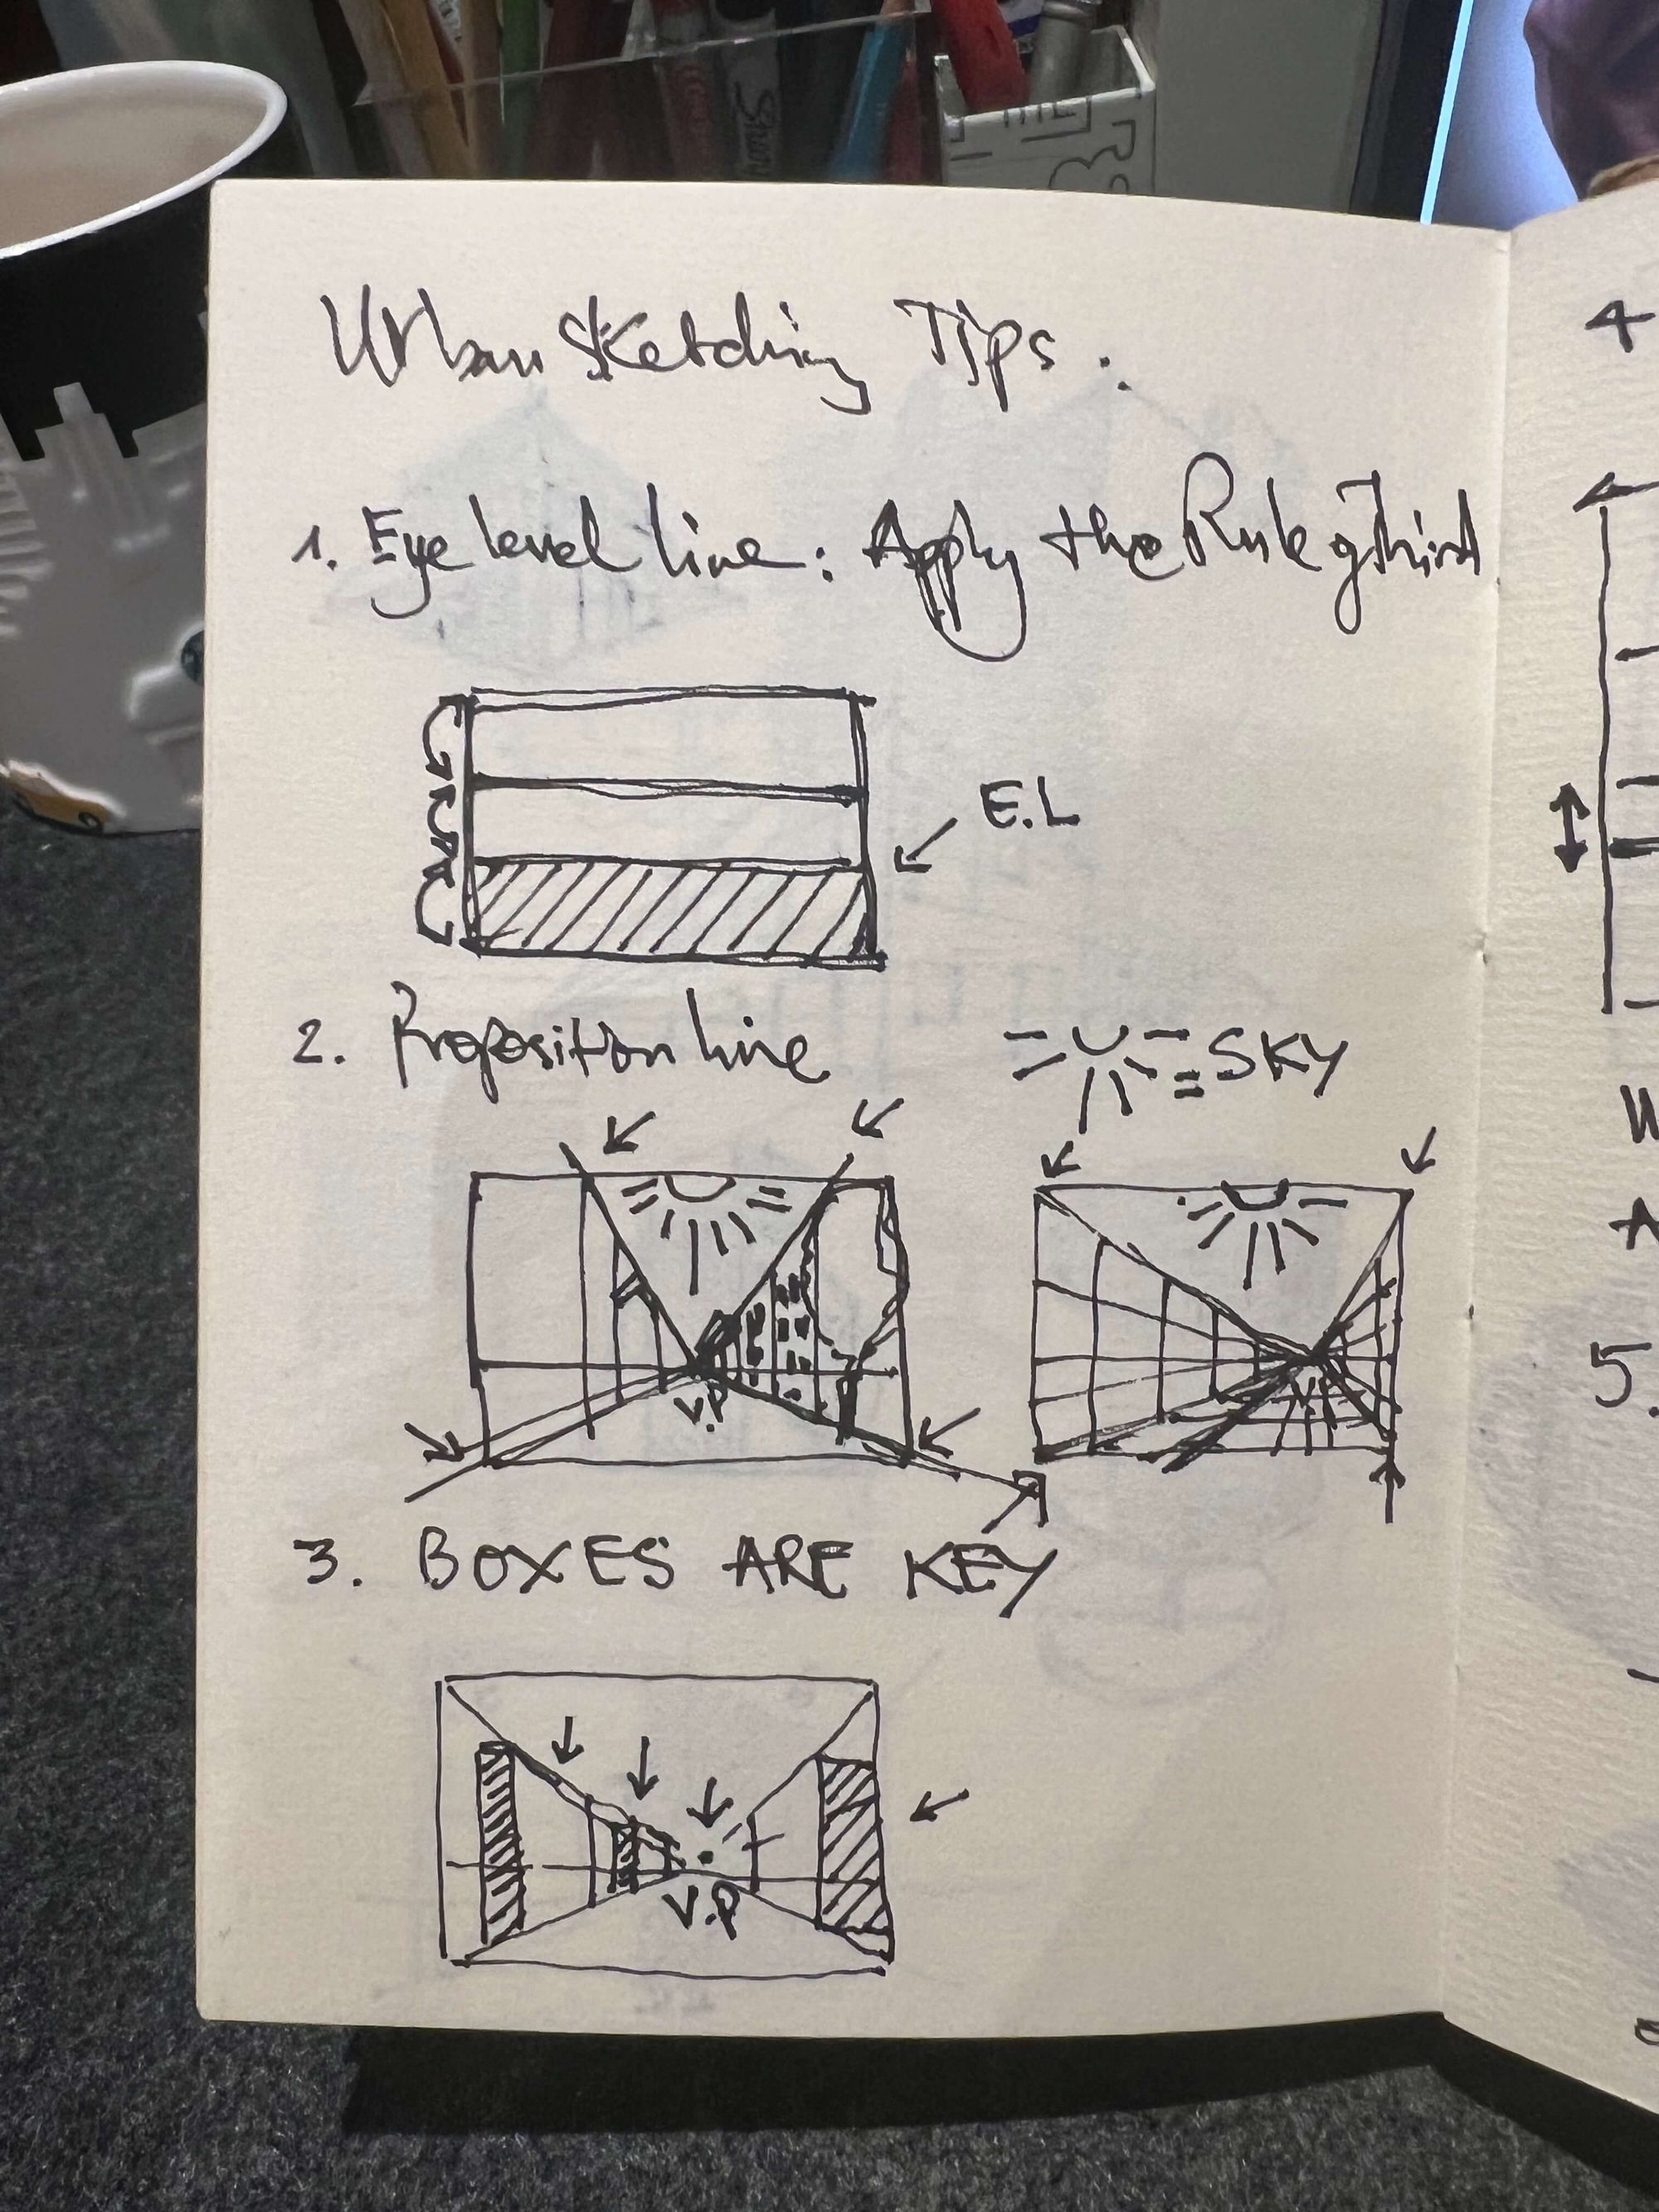 Urban Sketching Tips:
1. Eye level line: Apply the Rule of Third
E.L
2. Proposition line
= SKY
V.P
V.P
3. BOXES ARE KEY
V.P
4
5.